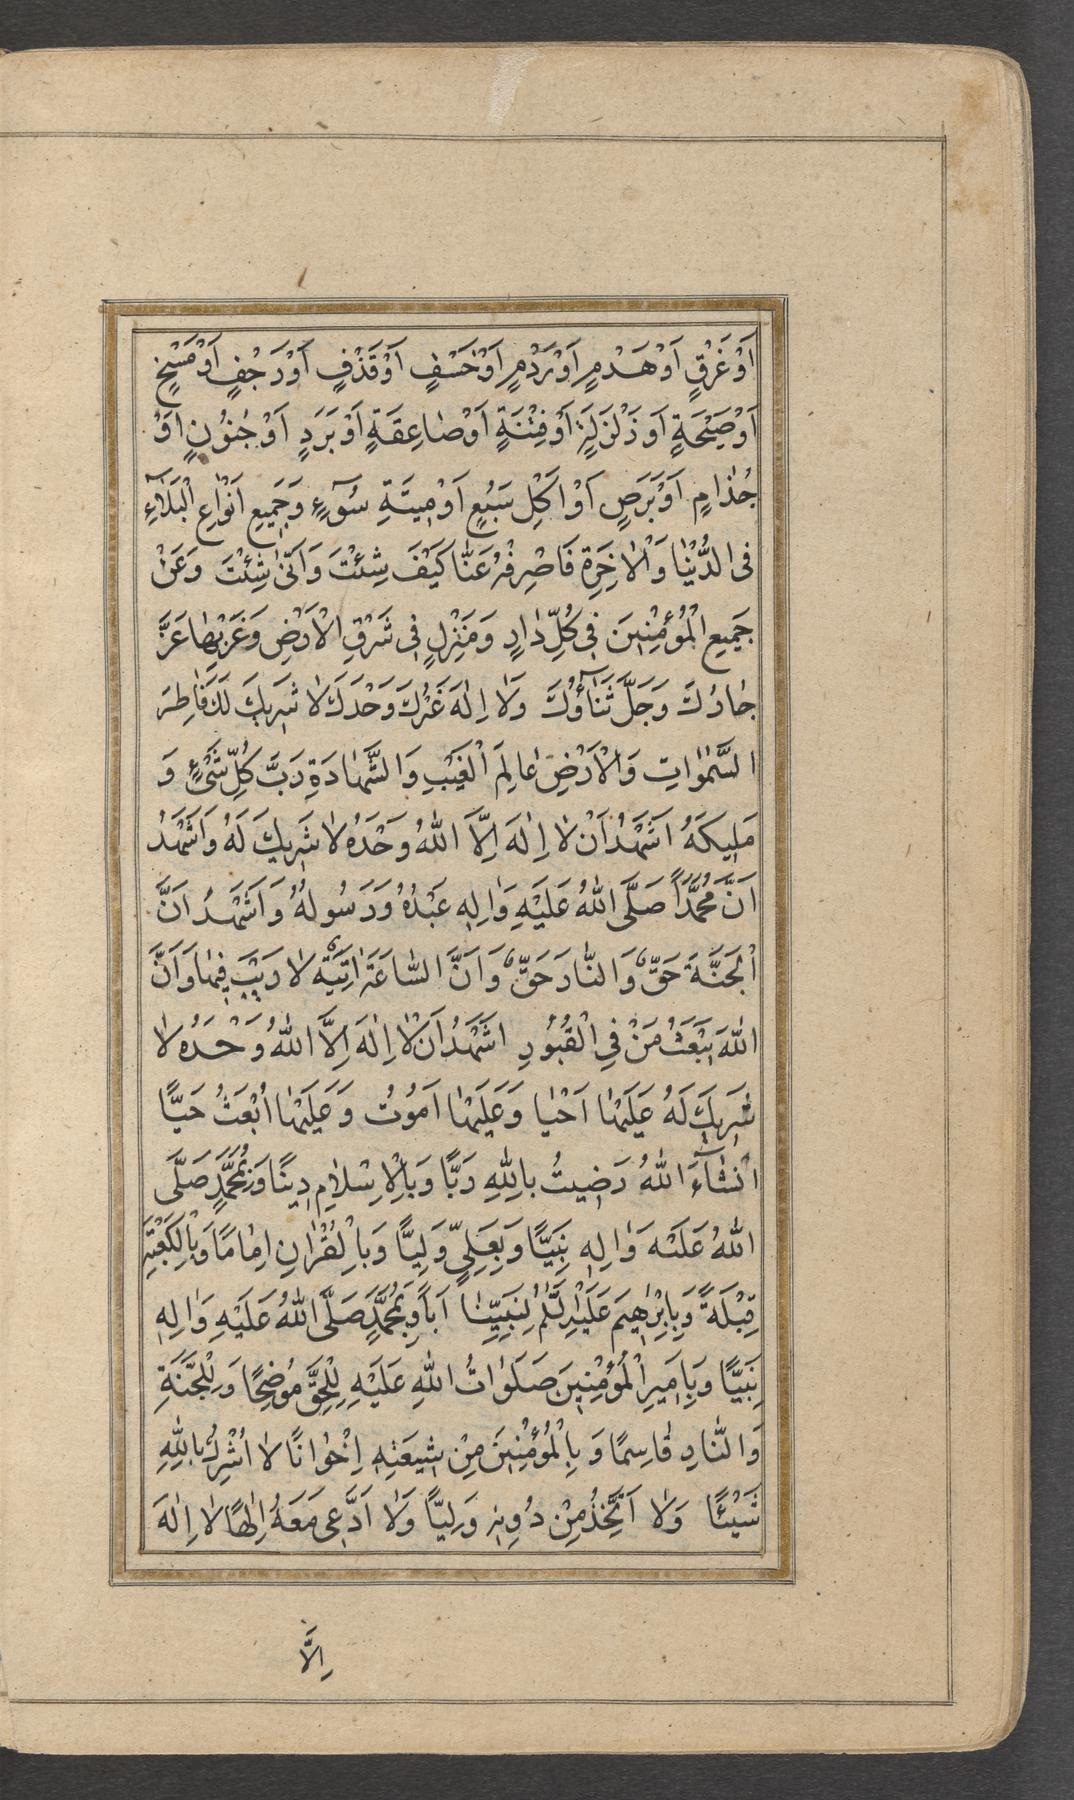 اَوْ غَرْقٍ اَوْ هَدْمٍ اَوْ رَدْمٍ اَوْ خَسْفٍ اَوْ قَذْفٍ اَوْ رَجْفٍ اَوْ مَسْخٍ
اَوْ صَيْحَةٍ اَو زَلْزَلَةٍ اَوْ فِتْنَةٍ اَوْ صٰاعِقَةٍ اَوْ بَرَدٍ اَوْ جُنُونٍ اَوْ
جُذٰامٍ اَوْ بَرَصٍ اَوْ اَكْلِ سَبُعٍ اَوْ مِيتَةِ سُوۤءٍ وَجَمِيعِ اَنْوٰاعِ الْبَلَآءِ
فِى الدُّنْيٰا وَالْاٰخِرَةِ فَاصْرِفْهُ عَنّٰا كَيْفَ شِئْتَ وَاَنّٰى شِئْتَ وَعَنْ
جَمِيعِ الْمُؤْمِنِينَ فِى كُلِّ دٰارٍ وَمَنْزِلٍ فِى شَرْقِ الْاَرْضِ وَغَرْبِهٰا عَزَّ
جٰارُكَ وَجَلَّ ثَنٰآؤُكَ وَلٰا اِلٰهَ غَيْرُكَ وَحْدَكَ لٰا شَرِيكَ لَكَ فٰاطِرَ
السَّمٰوٰاتِ وَالْاَرْضِ عٰالِمَ الْغَيْبِ وَالشَّهٰادَةِ رَبَّ كُلِّ شَىْءٍ وَ
مَلِيكَهُ اَشْهَدُ اَنْ لٰا اِلٰهَ اِلَّا اللّٰهُ وَحْدَهُ لٰا شَرِيكَ لَهُ وَاَشْهَدُ
اَنَّ مُحَمَّدًا صَلَّى اللّٰهُ عَلَيْهِ وَاٰلِهِ عَبْدُهُ وَرَسُولُهُ وَاَشْهَدُ اَنَّ
الْجَنَّةَ حَقٌّ وَالنّٰارَ حَقٌّ وَاَنَّ السّٰاعَةَ اٰتِيَةٌ لٰا رَيْبَ فِيهٰا وَاَنَّ
اللّٰهَ يَبْعَثُ مَنْ فِى الْقُبُورِ اَشْهَدُ اَنْ لٰا اِلٰهَ اِلَّا اللّٰهُ وَحْدَهُ لٰا
شَرِيكَ لَهُ عَلَيْهٰا اَحْيٰا وَعَلَيْهٰا اَمُوتُ وَعَلَيْهٰا اُبْعَثُ حَيًّا
اِنْشٰآءَ اللّٰهُ رَضِيتُ بِاللّٰهِ رَبًّا وَبِالْاِسْلٰامِ دِينًا وَبِمُحَمَّدٍ صَلَّى
اللّٰهُ عَلَيْهِ وَاٰلِهِ نَبِيًّا وَبِعَلِيٍّ وَلِيًّا وَبِالْقُرْاٰنِ اِمٰامًا وَبِالْكَعْبَةِ
قِبْلَةً وَبِاِبْرٰهِيمَ عَلَيْهِ السَّلٰمُ لِنَبِيِّنٰا اَبًا وَبِمُحَمَّدٍ صَلَّى اللّٰهُ عَلَيْهِ وَاٰلِهِ
نَبِيًّا وَبِاَمِيرِ الْمُؤْمِنِينَ صَلَوٰاتُ اللّٰهِ عَلَيْهِ لِلْحَقِّ مُوضِحًا وَلِلْجَنَّةِ
وَالنّٰارِ قٰاسِمًا وَبِالْمُؤْمِنِينَ مِنْ شِيعَتِهِ اِخْوٰانًا لٰا اُشْرِكُ بِاللّٰهِ
شَيْئًا وَلٰا اَتَّخِذُ مِنْ دُونِهِ وَلِيًّا وَلٰا اَدَّعِى مَعَهُ اِلٰهًا لٰا اِلٰهَ
اِلَّا